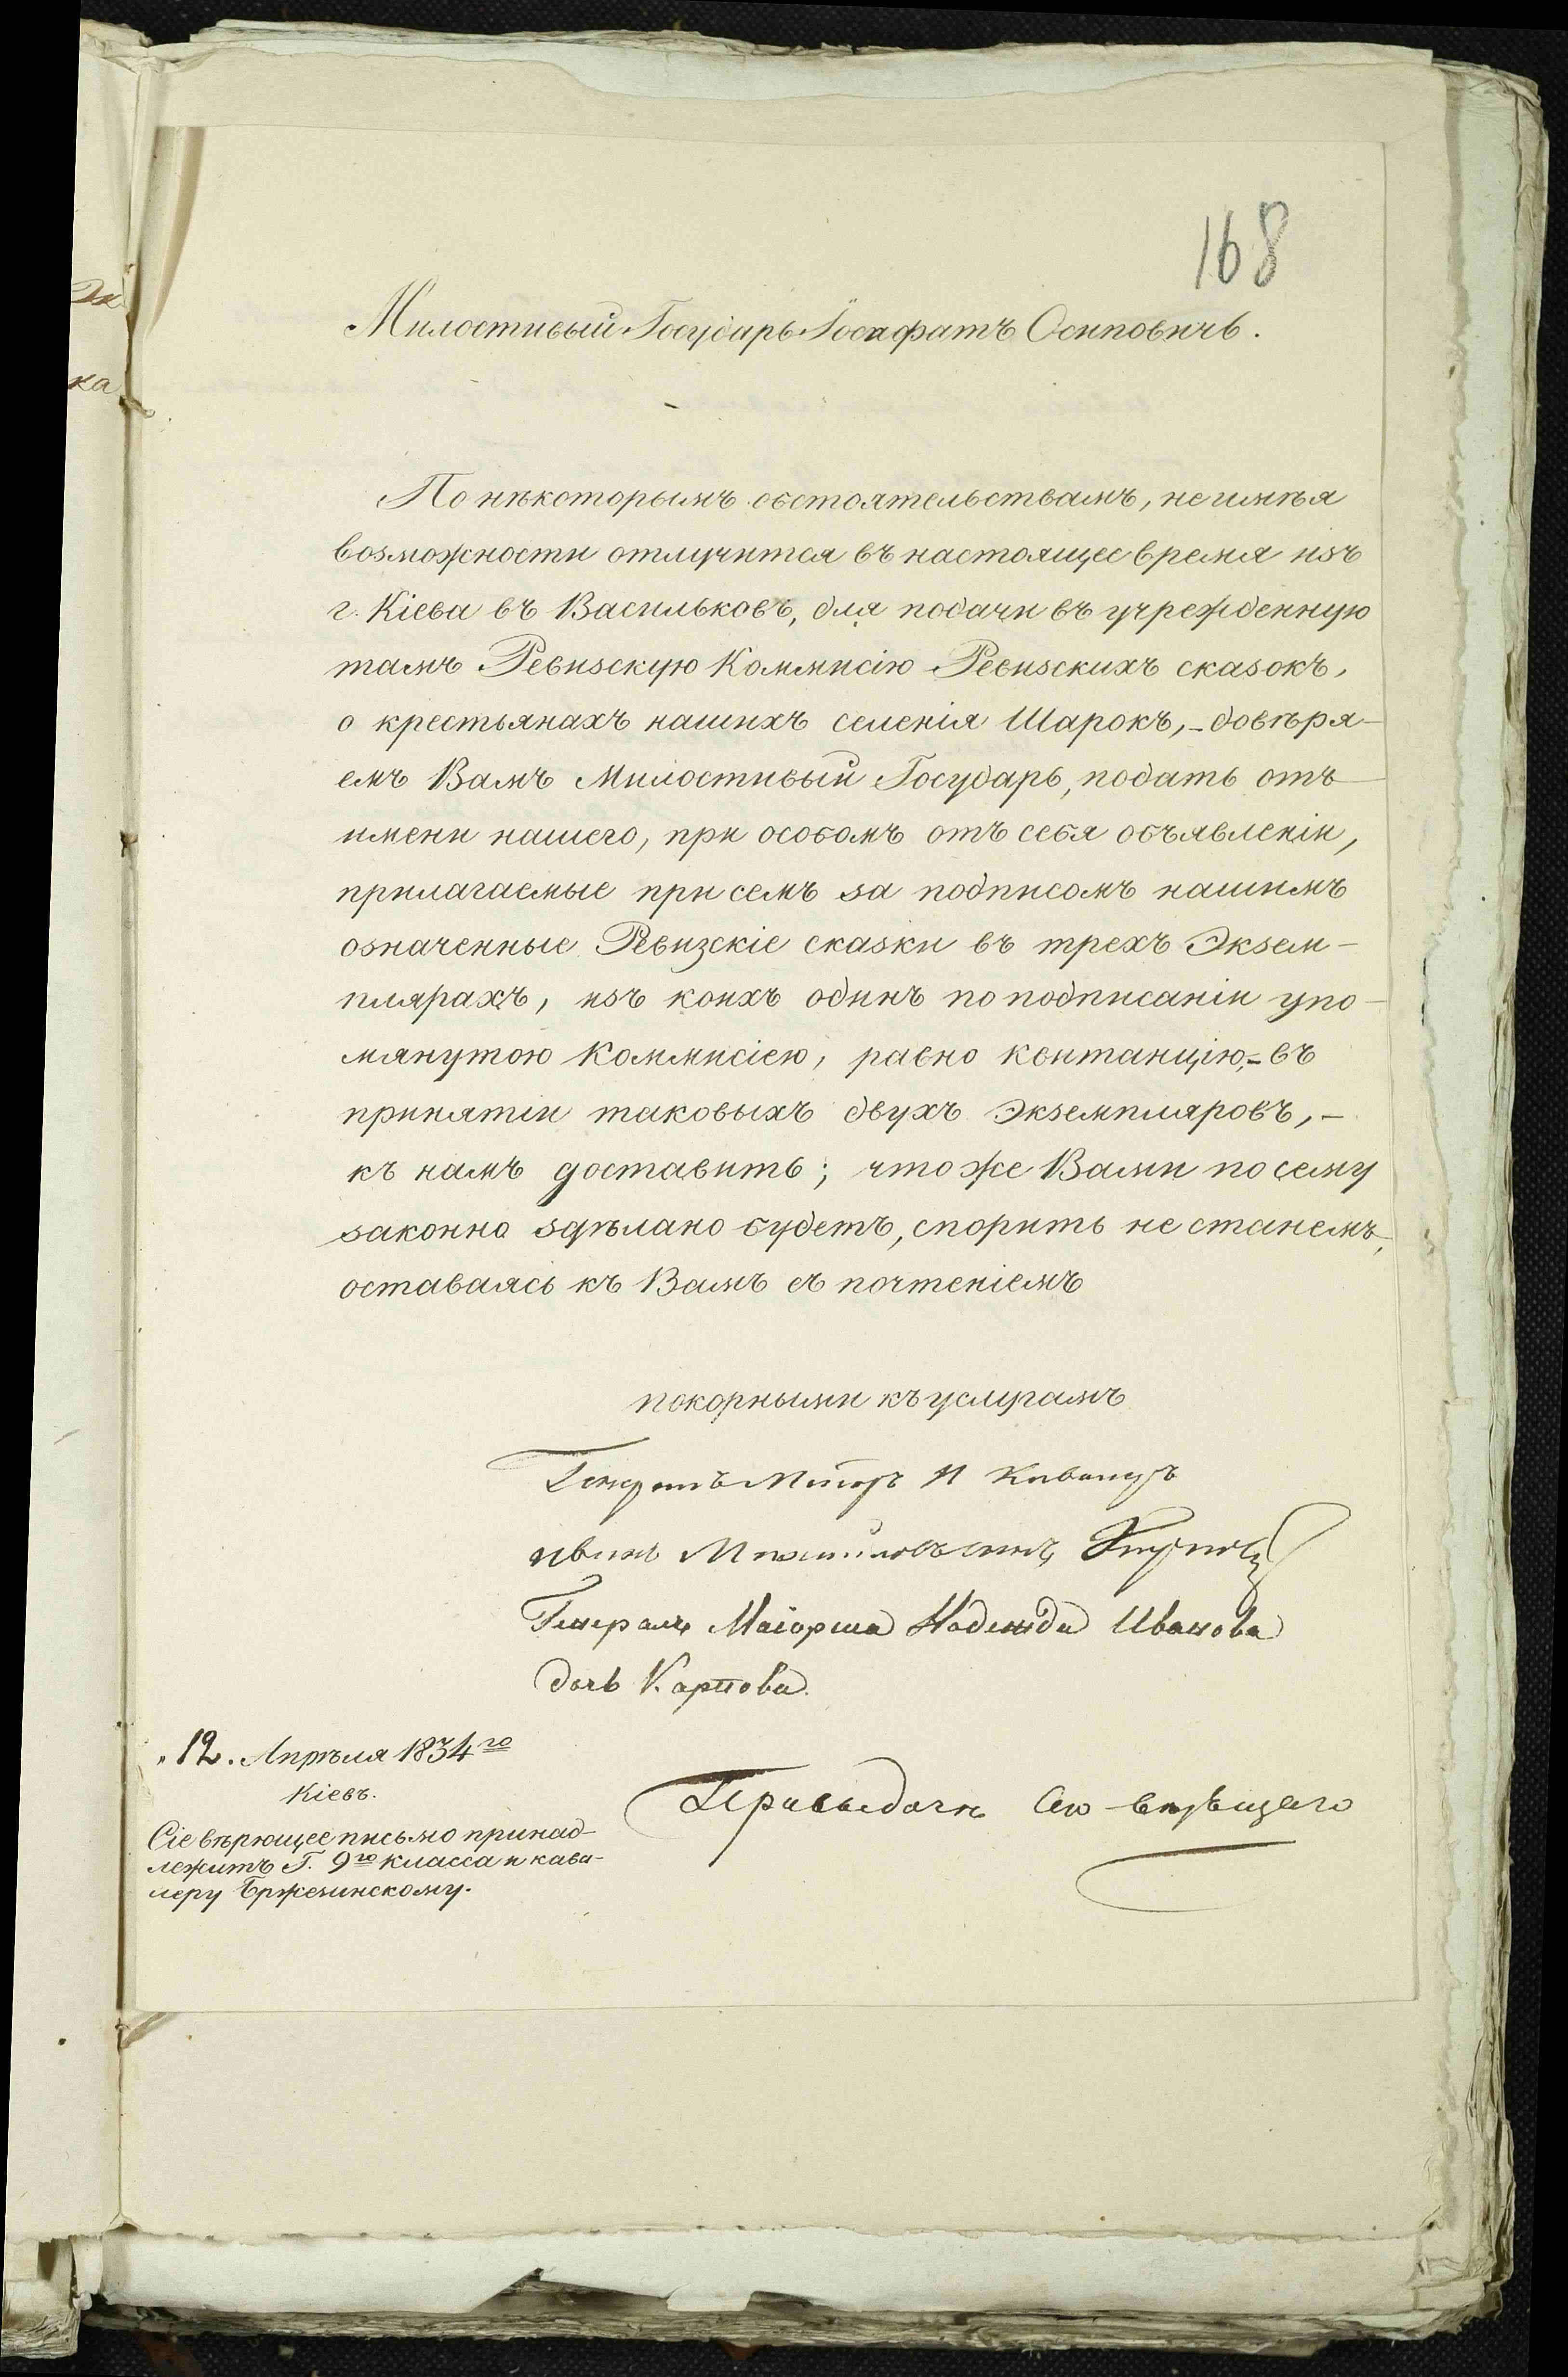 168
Милостивый Государь Іосафатъ Осиповичъ.
По нѣкоторымъ обстоятельствамъ, не имѣя
возможности отлучится въ настоящее время изъ
г. Кіева въ Васильковъ, для подачи въ учрежденную
тамъ Ревизскую Коммисію Ревизскихъ сказокъ,
о крестьянахъ нашихъ селенія Шарокъ,- довѣря-
емъ Вамъ Милостивый Государь, подать отъ
имени нашего, при особомъ отъ себя объявленіи,
прилагаемые при семъ за подписомъ нашимъ
означенные Ревизскіе сказки въ трехъ Экзем-
плярахъ, изъ коихъ одинъ по подписаніи упо-
мянутою Коммисіею, равно квитанцію,- въ
принятіи таковыхъ двухъ Экземпляровъ,-
къ намъ доставить; что же Вами по сему
законно здѣлано будетъ, спорить не станемъ,
оставаясь къ Вамъ съ почтеніемъ
покорными къ услугамъ
Генералъ Маіоръ И Кавалеръ
Иванъ сынъ Карповъ
Генералъ Маіорша Надежда Иванова
дочь Карпова.
"12. Апрѣля 1834го
Кіевъ.
Сіе вѣрющее письмо принад-
лежитъ Г. 9го класса и кава-
леру Бржезинскому.
ка